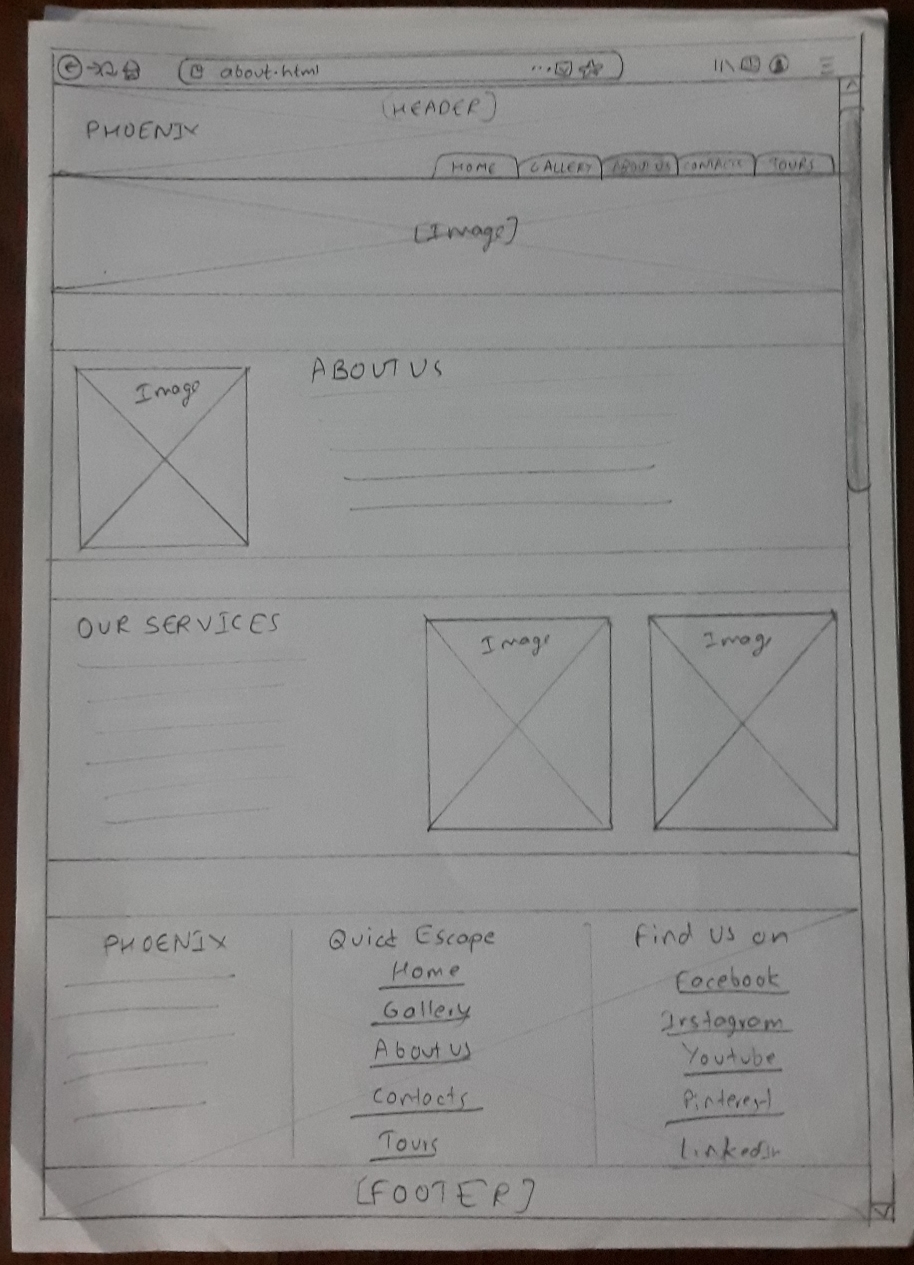 about.html
[HEADER]
PHOENIX
HOME GALLERY ABOUT US CONTACTS TOURS
[Image]
Image
ABOUT US
OUR SERVICES
Image
Imag
PHOENIX
Quick Escape
Home
Gallery
About us
Contacts
Tours
Find us on
Facebook
Instagram
Youtube
Pinterest
Linkedin
[FOOTER]